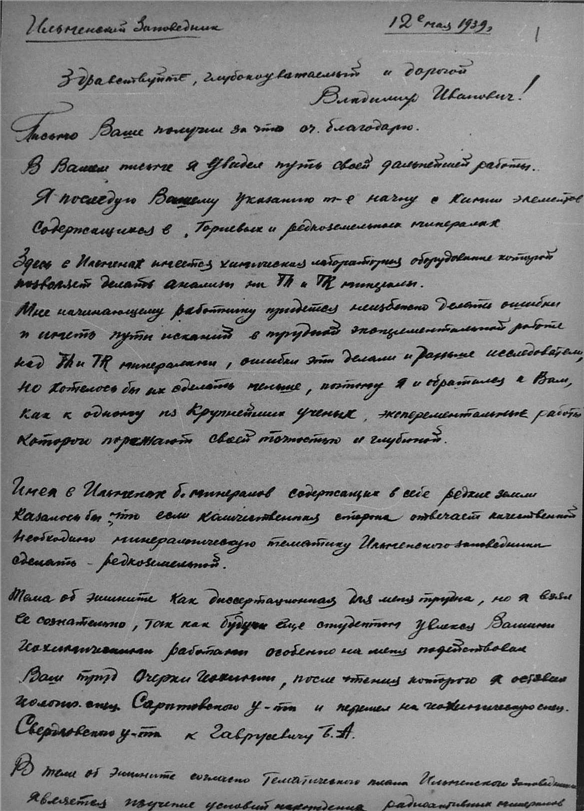 Ильменский Заповедник 12е мая 1939г. 1
Здравствуйте, глубокоуважаемый и дорогой
Владимир Иванович!
Письмо Ваше получил за что оч. благодарю.
В Вашем письме я увидел путь своей дальнейшей работы.
Я последую Вашему указанию т-е начну с химии элементов
содержащихся в Ториевых и редкоземельных минералах
Здесь в Ильменах имеется химическая лаборатория оборудование которой
позволяет делать анализы на Th и TR минералы.
Мне начинающему работнику придется неизбежно делать ошибки
и иметь пути исканий в трудной экспериментальной работе
над Th и TR минералами, ошибки эти делали и раньше исследователи,
но хотелось бы их сделать меньше, поэтому я и обратился к Вам,
как к одному из Крупнейших ученых, эксперементальные работы
которого поражают своей точностью и глубиной.
Имея в Ильменах минералов содержащих в себе редкие земли
казалось бы что если количественная сторона отвечает качественной
необходимо минералогическую тематику Ильменского заповедника
сделать - редкоземельной.
Тема об эшините как диссертационная для меня трудна, но я взял
ее сознательно, так как будучи еще студентом увлекся Вашими
геохимическими работами особенно на меня подействовал
Ваш труд Очерки геохимии, после чтения которого я оставил
геолого. спец. Саратовского у-та и перешел на геохимическую спец.
Свердловского у-та к Гаврусевичу Б.А.
В теме об эшините согласно Тематического плана Ильменского Заповедника
является изучение условий нахождения радиоактивных минералов